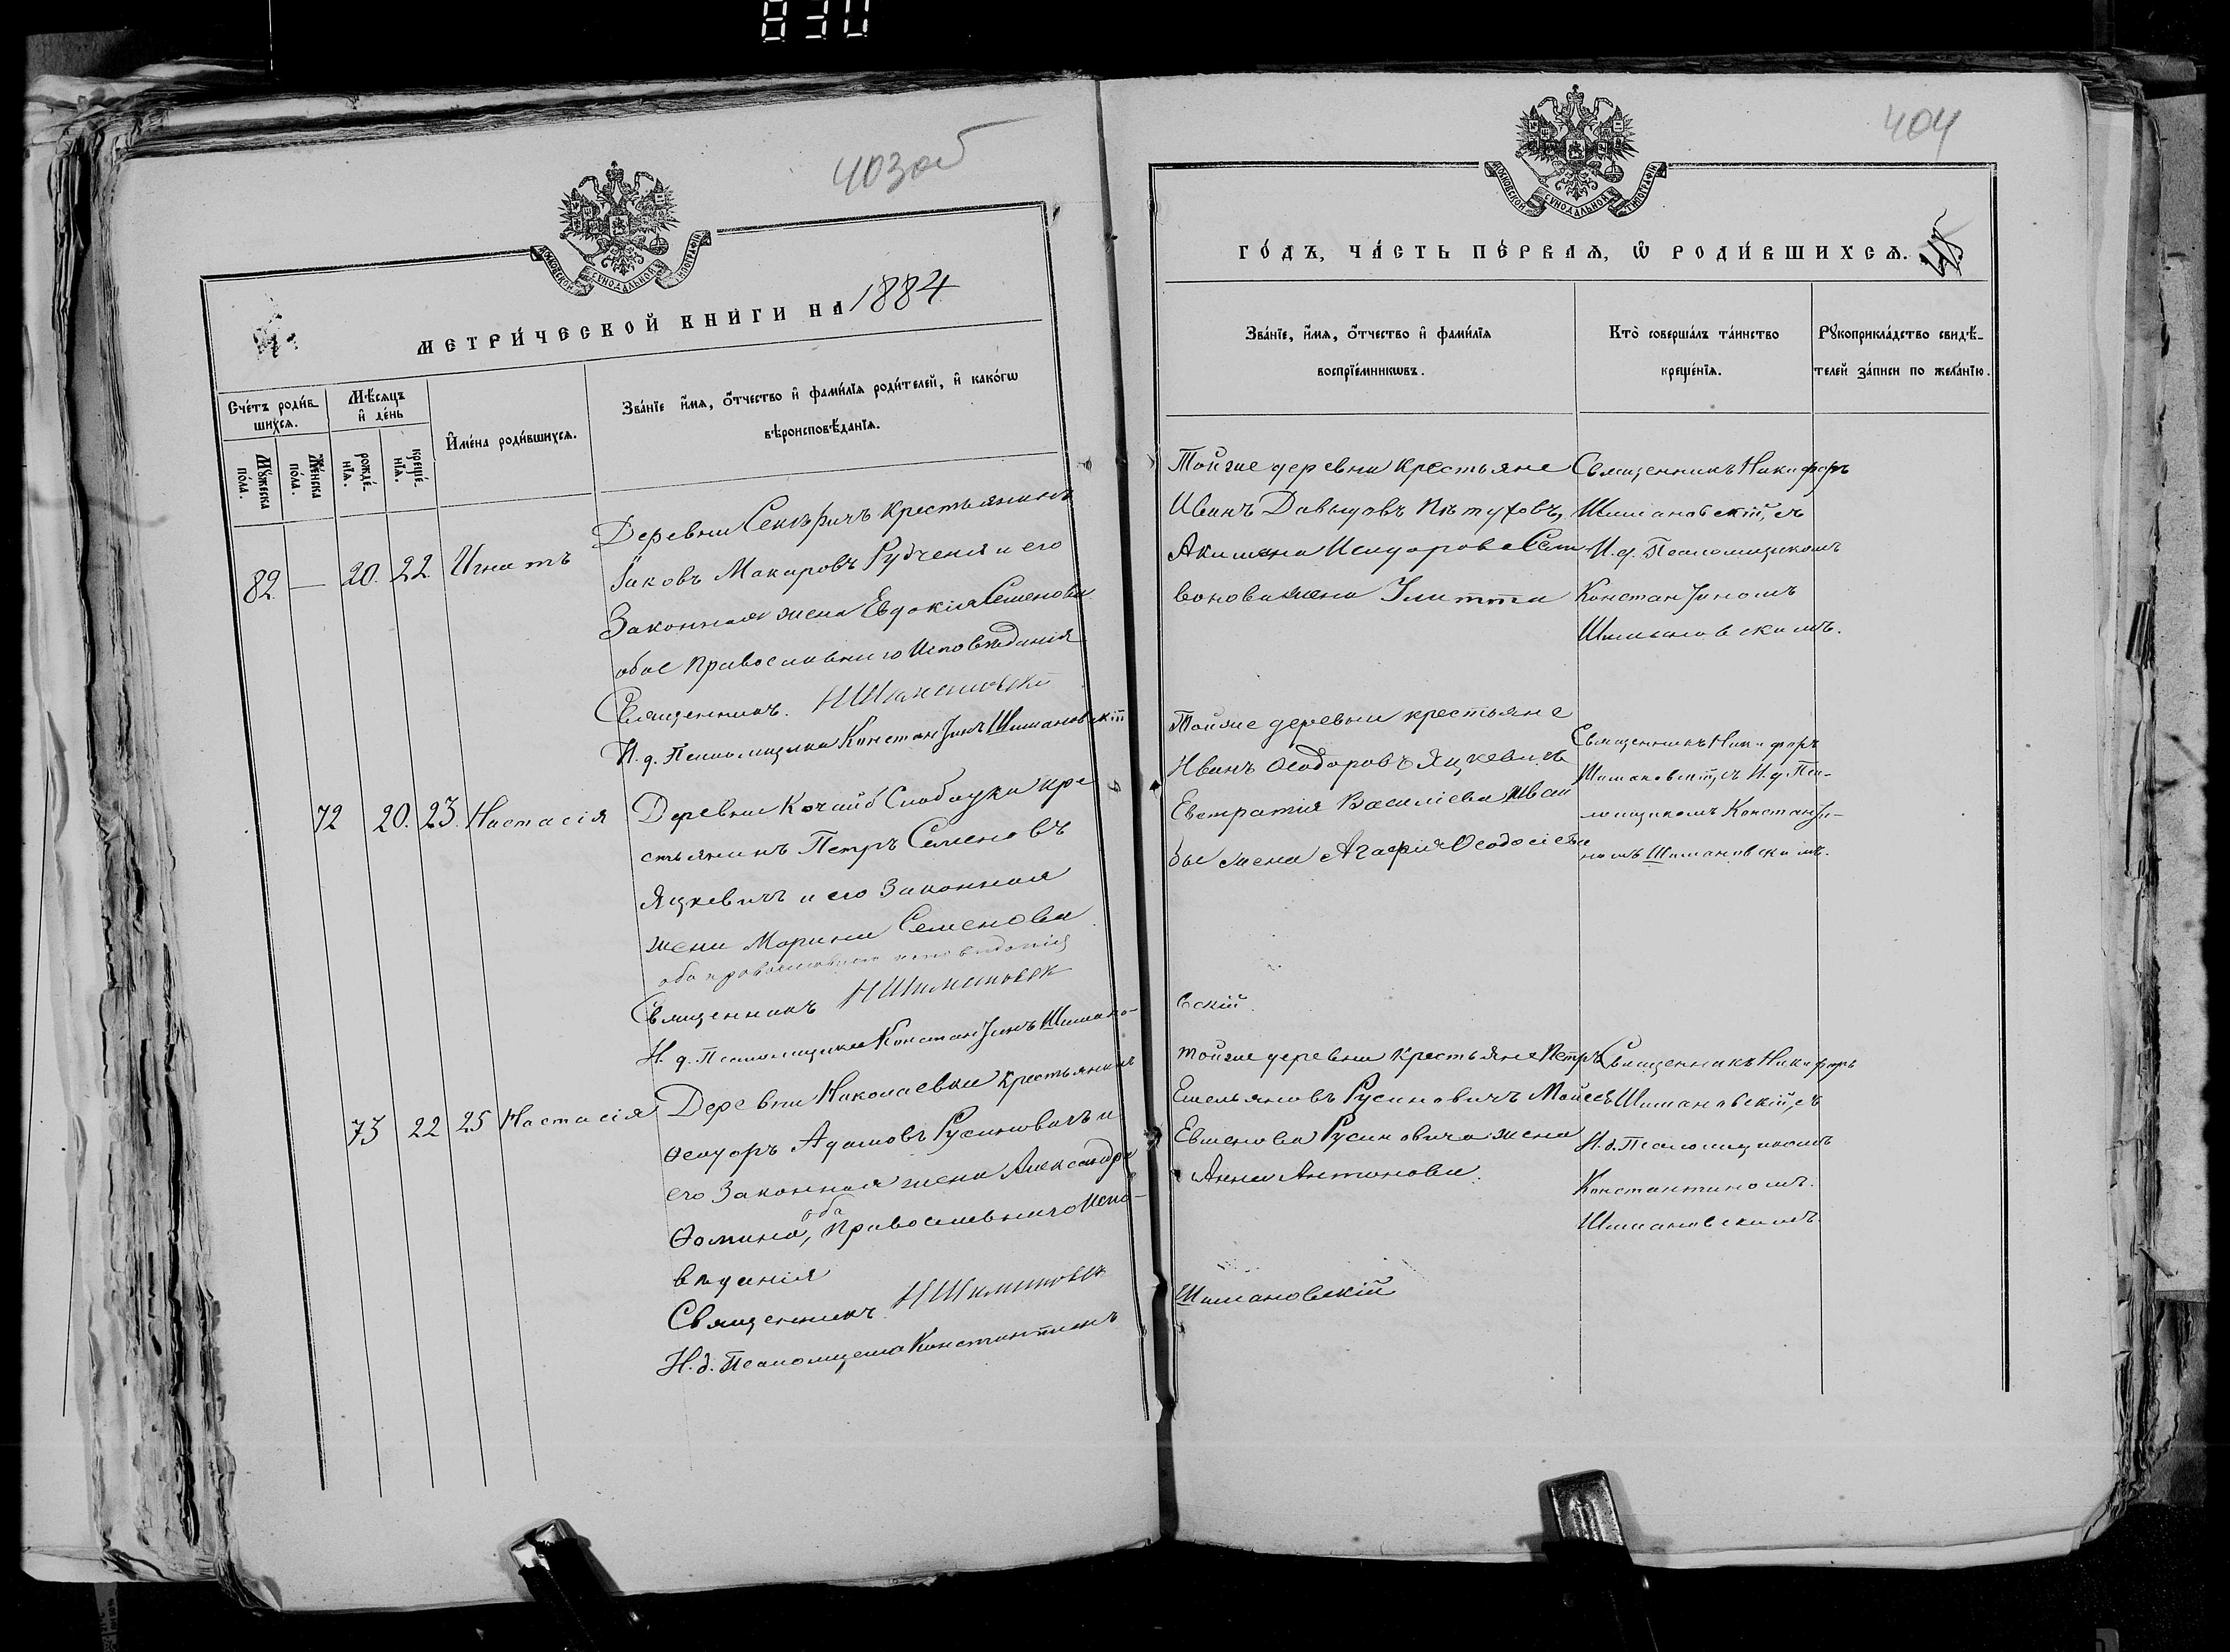 030
403об
МОСКОВСКОЙ СѴНОДАЛЬНОЙ ТИПОГРАФІИ
МЕТРИ́ЧЕСКОЙ КНИ́ГИ НА 1884
Сче́тъ роди́в-
шихсѧ.
Мѣ́сяцъ
и҆ де́нь
И҆мена̀ роди́вшихсѧ.
Зва́нїе и҆́мѧ, ѻ҆́тчество и҆ фами́лїѧ роди́телей, и҆ како́гѡ
вѣроисповѣ́данїѧ.
Мꙋ́жеска
по́ла.
Же́нска
по́ла.
рожде́-
нїѧ.
креще́-
нїѧ.
82 — 20. 22. Игнатъ
Деревни крестьянинъ
Іаковъ Макаровъ Рубченя и его
Законная жена Евдокія Семенова
обое Православнаго Исповѣданія
Священникъ. Н Шимановскій
И. д. Псаломщика Константинъ Шимановскій
72 20. 23. Настасія
Деревни Слободки кре
стьянинъ Петръ Семеновъ
Яцкевичъ и его Законная
жена Марина Семенова
оба православнаго исповѣданія
Священникъ Н Шимановск
И. д. Псаломщика Константинъ Шимано-
73 22 25 Настасія
Деревни Николаевки Крестьянинъ
Ѳеодоръ Адамовъ Русиновичъ и
его Законная жена Александра
Ѳомина, оба Православнаго Испо-
вѣданія
Священникъ Н Шимановск
И. д. Псаломщика Константинъ
404
МОСКОВСКОЙ СѴНОДАЛЬНОЙ ТИПОГРАФІИ
ГО́ДЪ, ЧА́СТЬ ПЕ́РВАѦ, Ѡ҆ РОДИ́ВШИХСѦ.
Зва́нїе, и҆́мѧ, ѻ҆́тчество и҆ фами́лїѧ
воспрїе́мникѡвъ.
Кто̀ соверша́лъ та́инство
креще́нїѧ.
Рꙋкоприкла́дство свидѣ́-
телей за́писи по жела́нїю.
Тойже деревни Крестьяне
Иванъ Давыдовъ Пѣтуховъ,
Акилина Исидорова
жена
Священникъ Никифоръ
Шимановскій, съ
И. д. Псаломщикомъ
Константиномъ
Шимановскимъ.
Тойже деревни крестьяне
Иванъ Ѳеодоровъ Яцкевичъ
Евстратія Василіева
жена Агафія Ѳеодосіева
Священникъ Никифоръ
Шимановскій, съ И. д. Пса-
ломщикомъ Константи-
номъ Шимановскимъ.
вскій.
Тойже деревни Крестьяне Петръ
Емельяновъ Русиновичъ
Русиновича жена
Анна Антонова.
Священникъ Никифоръ
Шимановскій, съ
И. д. Псаломщикомъ
Константиномъ.
Шимановскимъ.
Шимановскій